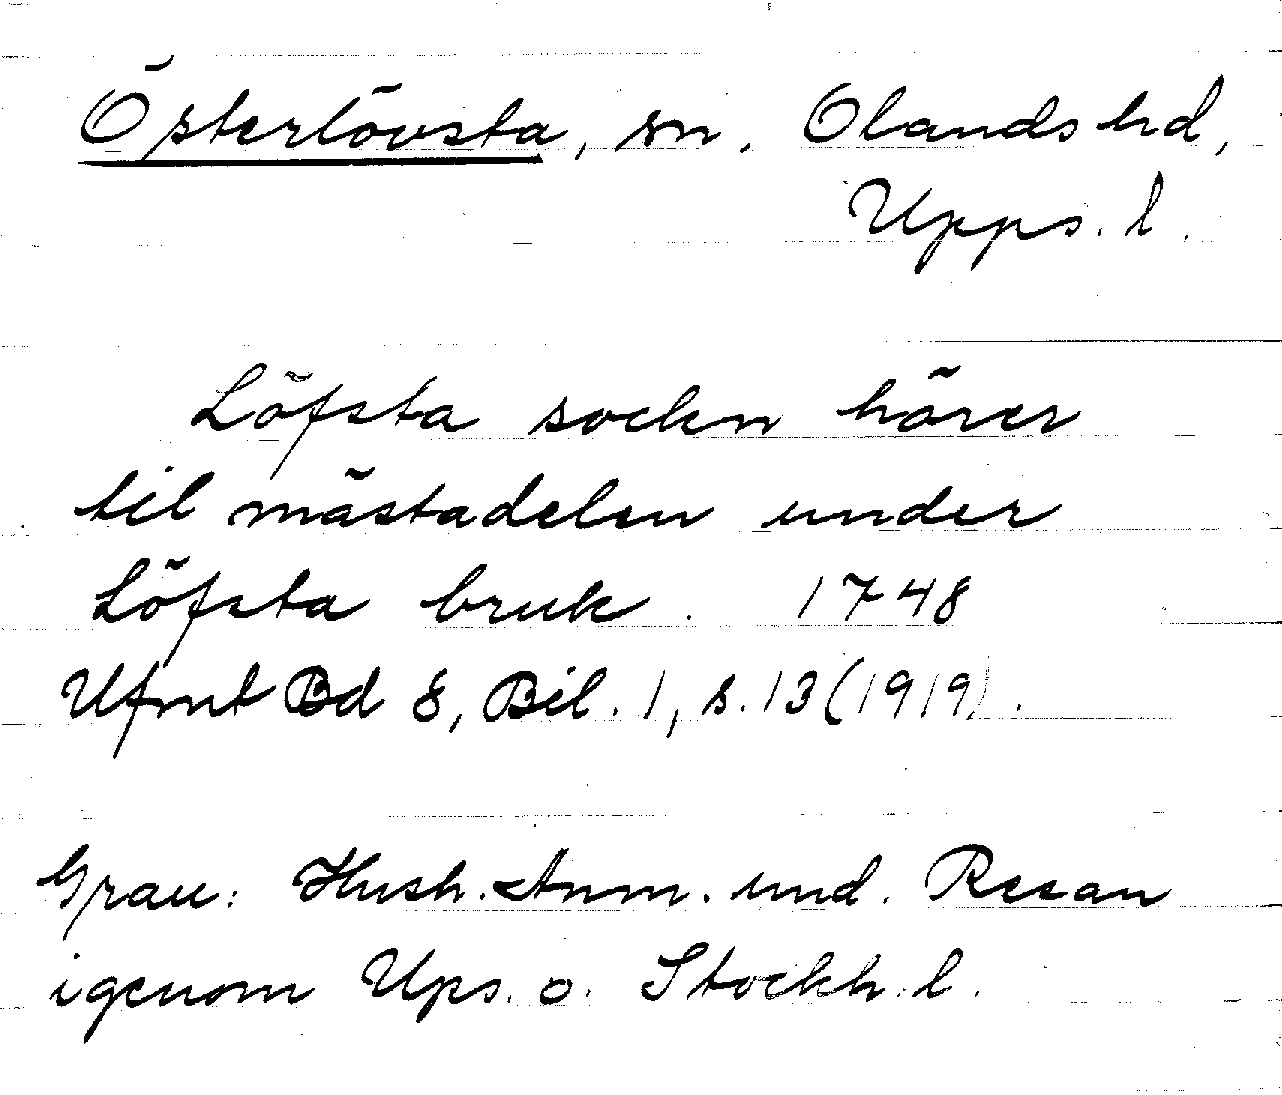 Österlövsta, sn. Olands hd,
Upps. l.
Löfsta sockn hörer
til mästadelen under
Löfsta bruk. 1748
Ufmt Bd 8, Bil. 1, s. 13 (1919).
Grau: Hush. Anm. und. Resan
igenom Ups. o. Stockh. l.